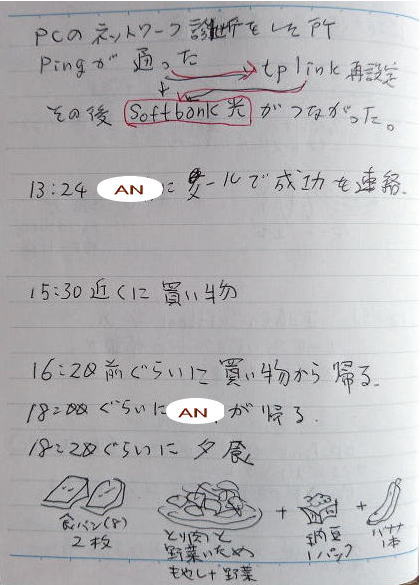 PCのネットワーク診断をした所
Pingが通った
tplink再設定
その後 Softbank光 がつながった。
13:24 AN にメールで成功を連絡.
15:30 近くに買い物
16:20 前ぐらいに買い物から帰る.
18:00 ぐらいに AN が帰る.
18:20 ぐらいに夕食
食パン(8)
2枚
とり肉と
野菜いため
もやし+野菜
+
納豆
1パック
+
バナナ
1本